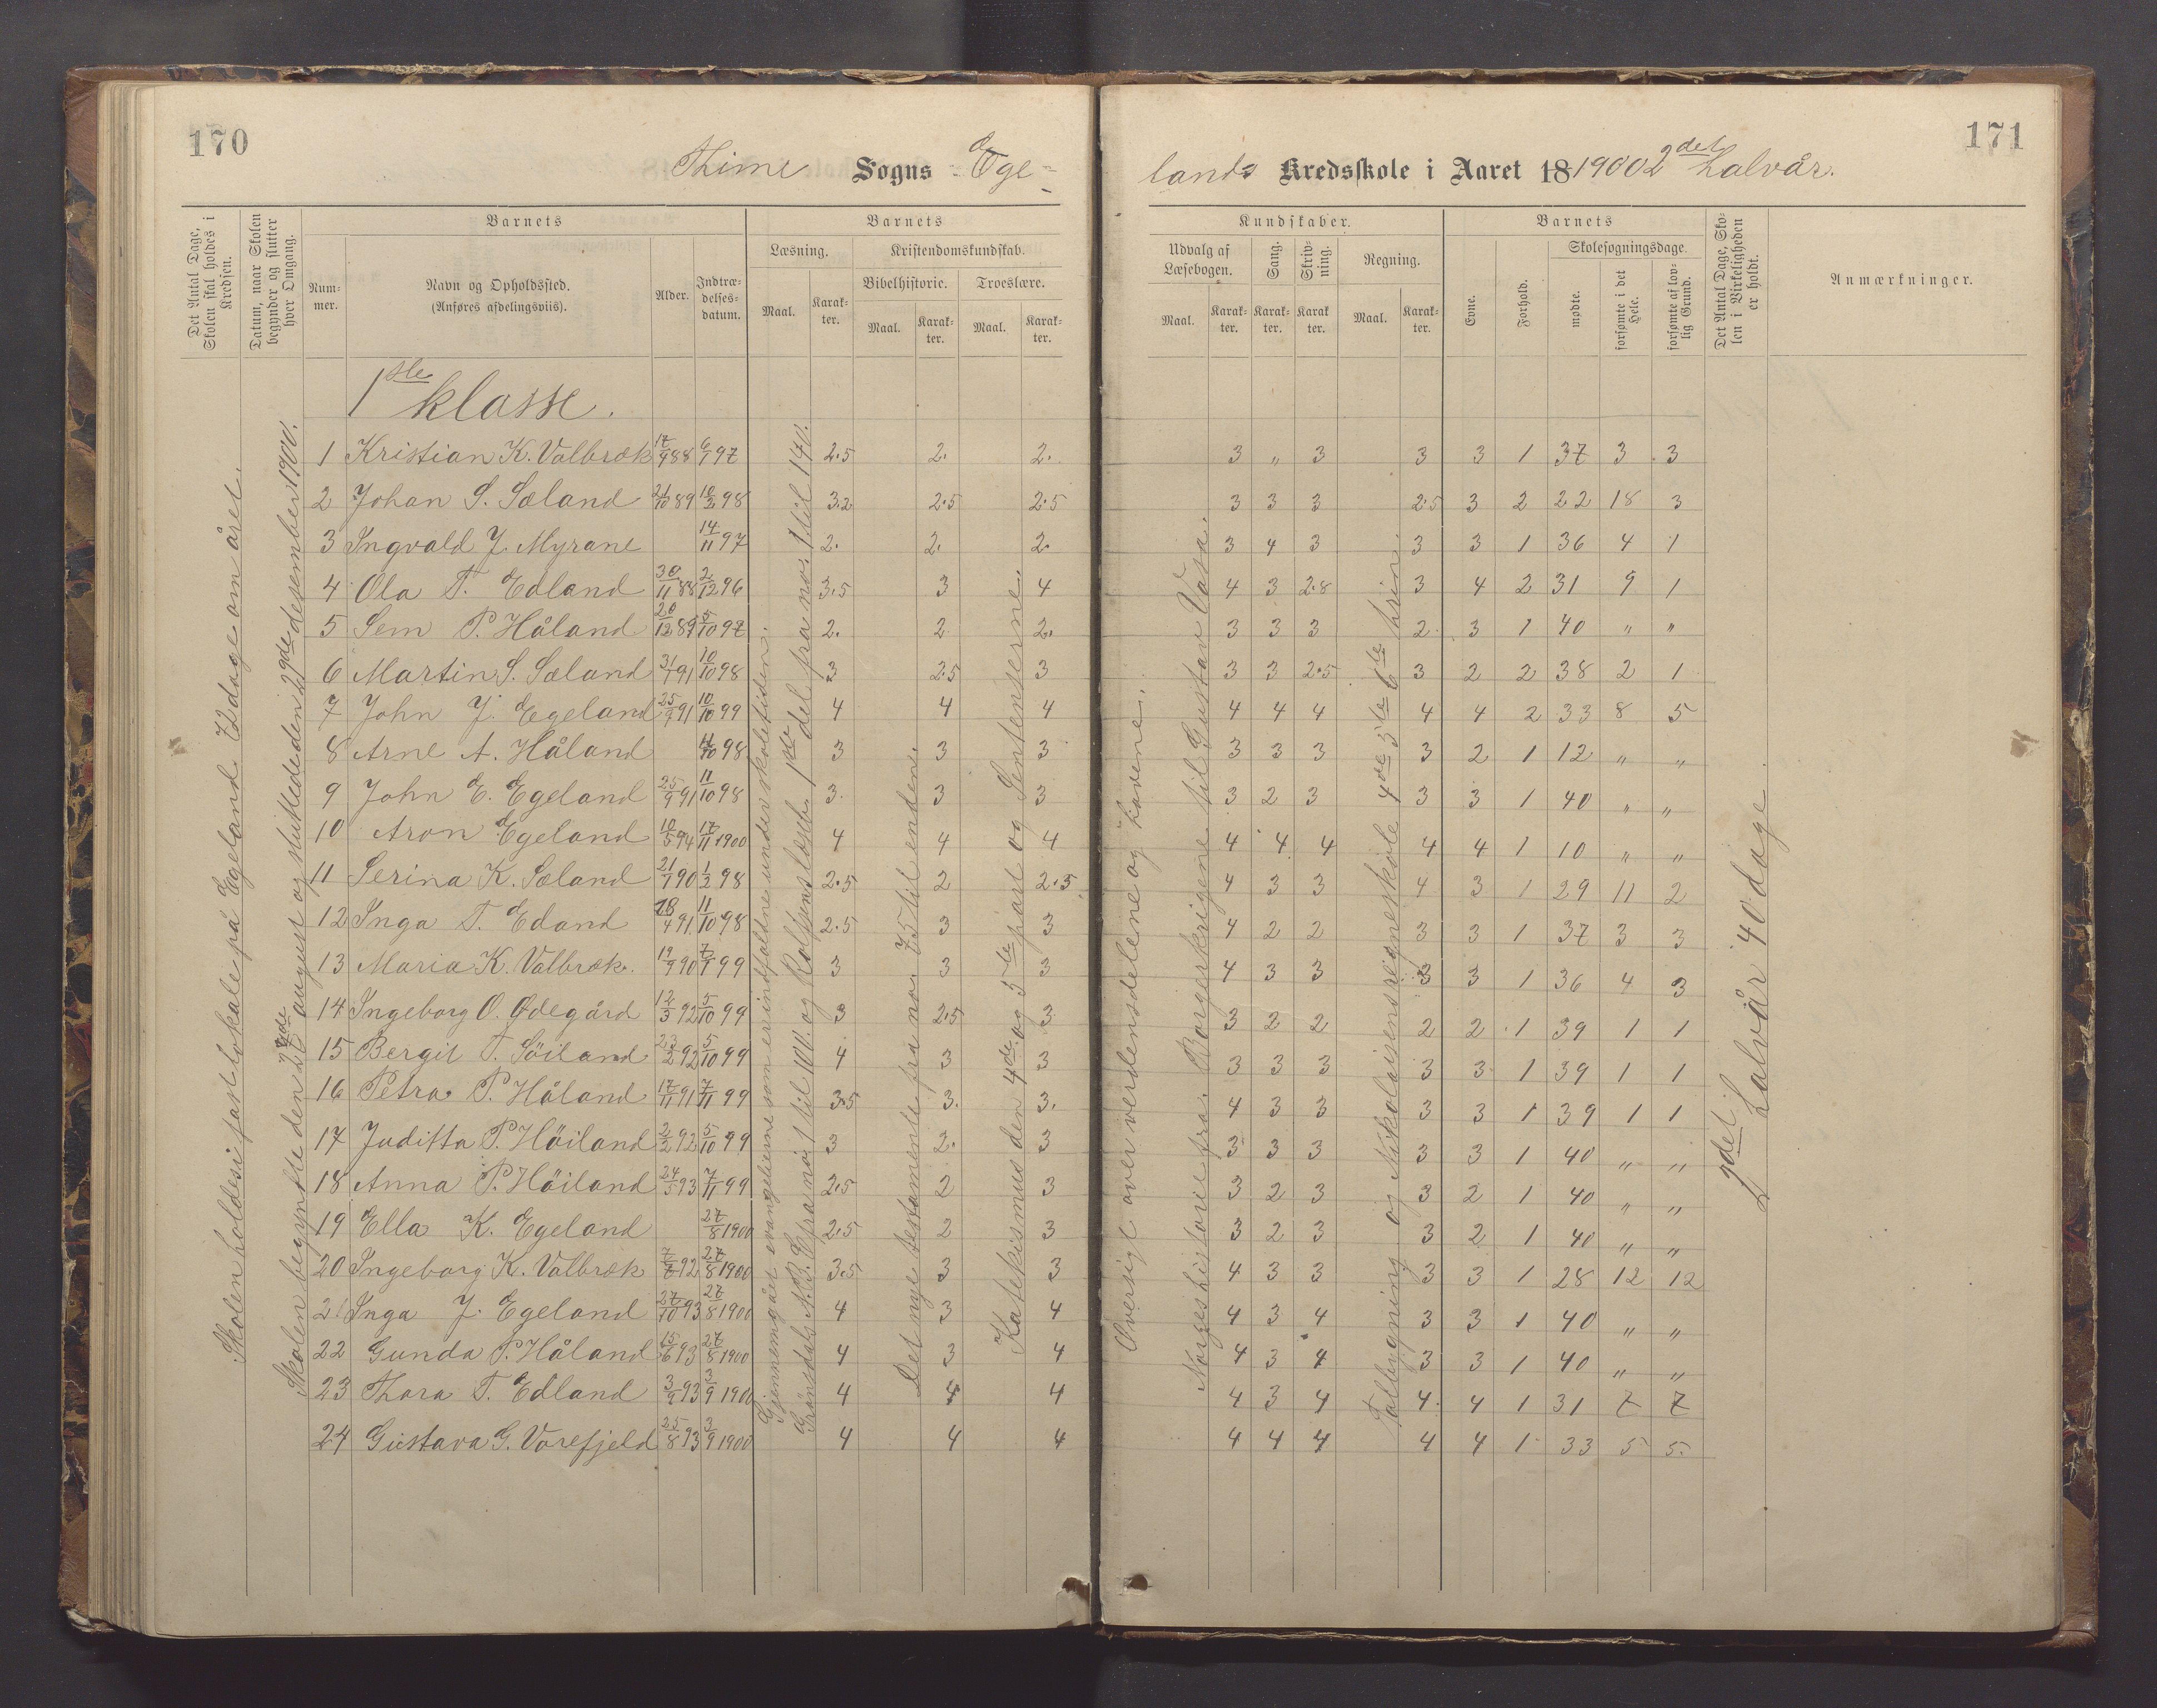 170
171
Thime Sogns Ege=
lands Kredsskole i Aaret 18 1900 2det halvår.
Det Antal Dage, Skolen skal holdes i Kredsen.
Datum, naar Skolen begynder og slutter hver Omgang.
Barnets
Num-mer.
Navn og Opholdssted.
(Anføres afdelingsviis).
Alder.
Indtræ-delses-datum.
Barnets
Læsning.
Kristendomskundskab.
Bibelhistorie.
Troeslære.
Maal.
Karak-ter.
Maal.
Karak-ter.
Maal.
Karak-ter.
Kundskaber.
Udvalg af Læsebogen.
Sang.
Skriv-ning.
Regning.
Maal.
Karak-ter.
Karak-ter.
Karak-ter.
Maal.
Karak-ter.
Barnets
Evne.
Forhold.
Skolesøgningsdage.
mødte.
forsømte i det Hele.
forsømte af lov-lig Grund.
Det Antal Dage, Sko-len i Virkeligheden er holdt.
Anmærkninger.
1ste klasse.
1 Kristian K. Valbræk 17/9 88 6/1 97 2.5 2. 2. 3 „ 3 3 3 1 37 3 3
2 Johan S. Sæland 21/10 89 10/2 98 3.2 2.5 2.5 3 3 3 2.5 3 2 22 18 3
3 Ingvald J. Myrane 14/11 97 2. 2. 2. 3 4 3 3 3 1 36 4 1
4 Ola T. Edland 30/11 88 2/12 96 3.5 3 4 4 3 2.8 3 4 2 31 9 1
5 Sem P. Håland 20/12 89 5/10 97 2. 2 2. 3 3 3 2. 3 1 40 „ „
6 Martin S. Sæland 31/7 91 10/10 98 3 2.5 3 3 3 2.5 3 2 2 38 2 1
7 John J. Egeland 25/9 91 10/10 99 4 4 4 4 4 4 4 4 2 33 8 5
8 Arne A. Håland 98 3 3 3 3 3 3 3 2 1 12 „ „
9 John E. Egeland 25/9 91 11/10 98 3. 3 3 3 2 3 3 3 1 40 „ „
10 Aron Egeland 10/5 94 17/11 1900 4 4 4 4 4 4 4 4 1 10 „ „
11 Serina K. Sæland 21/1 90 1/2 98 2.5 2 2.5 4 3 3 4 3 1 29 11 2
12 Inga T. Edand 18/4 91 11/10 98 2.5 3 3 4 2 2 3 3 1 37 3 3
13 Maria K. Valbræk. 19/9 90 7/9 99 3 3 3 4 3 3 3 3 1 36 4 3
14 Ingeborg O. Ødegård 12/3 92 5/10 99 3 2.5 3 3 2 2 2 2 1 39 1 1
15 Bergit T. Söiland 23/2 92 5/10 99 4 3 3 3 3 3 3 3 1 39 1 1
16 Petra P. Håland 17/11 91 7/11 99 3.5 3. 3. 4 3 3 3 3 1 39 1 1
17 Juditta P. Höiland 2/2 92 5/10 99 3 2. 3 3 3 3 3 3 1 40 „ „
18 Anna P. Höiland 24/5 93 7/11 99 2.5 2 3 3 2 3 3 2 1 40 „ „
19 Ella K. Egeland 27/8 1900 2.5 2 3 3 2 3 3 2 1 40 „ „
20 Ingeborg K. Valbræk 92 27/8 1900 3.5 3 3 4 3 3 3 3 1 28 12 12
21 Inga J. Egeland 27/10 93 27/8 1900 4 3 4 4 3 4 3 3 1 40 „ „
22 Gunda P. Håland 15/6 93 27/8 1900 4 3 4 4 3 4 3 3 1 40 „ „
23 Thora T. Edland 3/9 93 3/9 1900 4 4 4 4 3 4 4 4 1 31 7 7
24 Gustava G. Vorefjeld 25/8 93 3/9 1900 4 4 4 4 4 4 4 4 1 33 5 5
Skolen holdes i fast lokale på Egeland 72 dage om året.
Skolen begynte den 27de august og sluttede den 29de desember 1900.
Gjennemgåt evangelierne som er indfaldne under skoletiden.
Gröndals A.B.C. fra no. 1 til 100 og Rolfsens læseb. 1ste del fra no. 1 til 140.
Det nye testamente fra no. 75 til enden.
Katekismus den 4de og 5te part og Sentenserne.
Oversigt over verdensdelene og havene.
Norges historie fra Borgerkrigene til Gustav Vasa.
Tallbygning og Nikolaisens regneskole 4de 5te 6te trin.
2det halvår 40 dage.